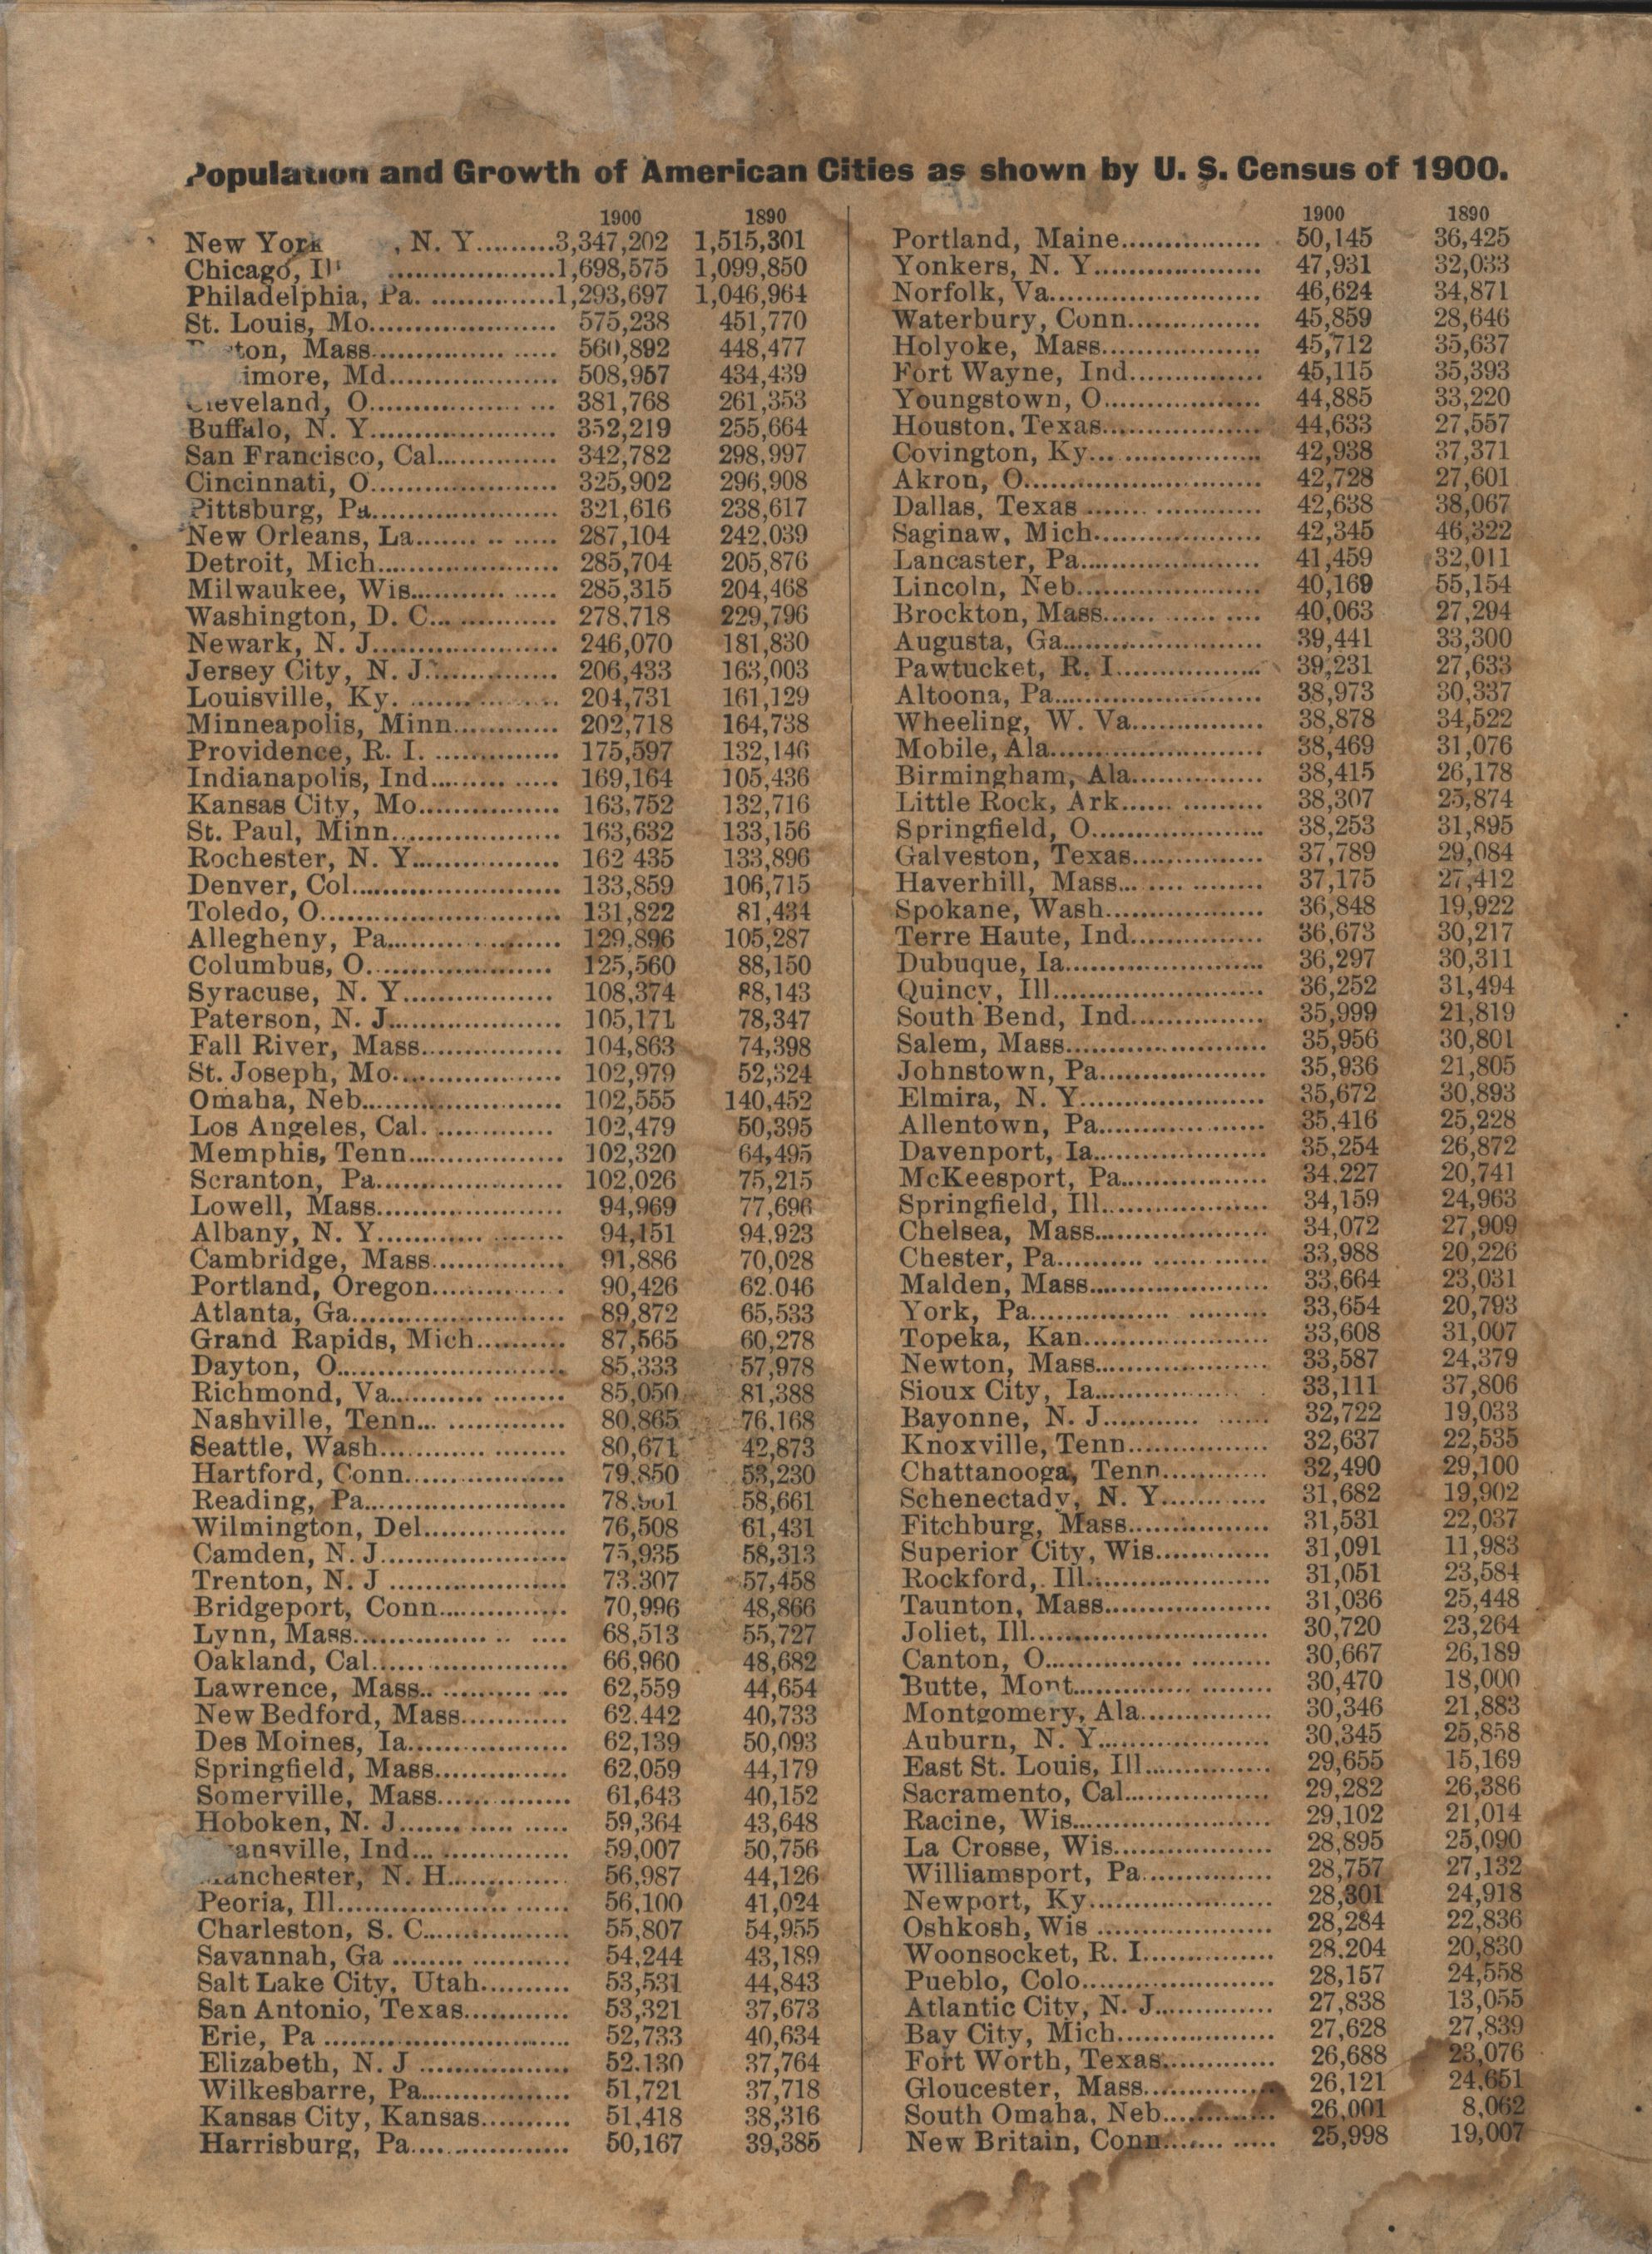 Population and Growth of American Cities as shown by U. S. Census of 1900.
1900 1890
New York , N. Y. 3,347,202 1,515,301
Chicago, Ill 1,698,575 1,099,850
Philadelphia, Pa. 1,293,697 1,046,964
St. Louis, Mo. 575,238 451,770
ton, Mass. 560,892 448,477
imore, Md. 508,957 434,439
Cleveland, O. 381,768 261,353
Buffalo, N. Y. 352,219 255,664
San Francisco, Cal. 342,782 298,997
Cincinnati, O. 325,902 296,908
Pittsburg, Pa. 321,616 238,617
New Orleans, La. 287,104 242,039
Detroit, Mich. 285,704 205,876
Milwaukee, Wis. 285,315 204,468
Washington, D. C. 278,718 229,796
Newark, N. J. 246,070 181,830
Jersey City, N. J. 206,433 163,003
Louisville, Ky. 204,731 161,129
Minneapolis, Minn. 202,718 164,738
Providence, R. I. 175,597 132,146
Indianapolis, Ind. 169,164 105,436
Kansas City, Mo. 163,752 132,716
St. Paul, Minn. 163,632 133,156
Rochester, N. Y. 162 435 133,896
Denver, Col. 133,859 106,715
Toledo, O. 131,822 81,434
Allegheny, Pa. 129,896 105,287
Columbus, O. 125,560 88,150
Syracuse, N. Y. 108,374 88,143
Paterson, N. J. 105,171 78,347
Fall River, Mass. 104,863 74,398
St. Joseph, Mo. 102,979 52,324
Omaha, Neb. 102,555 140,452
Los Angeles, Cal. 102,479 50,395
Memphis, Tenn. 102,320 64,495
Scranton, Pa. 102,026 75,215
Lowell, Mass. 94,969 77,696
Albany, N. Y. 94,151 94,923
Cambridge, Mass. 91,886 70,028
Portland, Oregon. 90,426 62.046
Atlanta, Ga. 89,872 65,533
Grand Rapids, Mich. 87,565 60,278
Dayton, O. 85,333 57,978
Richmond, Va. 85,050 81,388
Nashville, Tenn. 80,865 76,168
Seattle, Wash. 80,671 42,873
Hartford, Conn. 79,850 53,230
Reading, Pa. 58,661
Wilmington, Del. 76,508 61,431
Camden, N. J. 75,935 58,313
Trenton, N. J 73.307 57,458
Bridgeport, Conn. 70,996 48,866
Lynn, Mass. 68,513 55,727
Oakland, Cal. 66,960 48,682
Lawrence, Mass. 62,559 44,654
New Bedford, Mass. 62.442 40,733
Des Moines, Ia. 62,139 50,093
Springfield, Mass. 62,059 44,179
Somerville, Mass. 61,643 40,152
Hoboken, N. J. 59,364 43,648
ansville, Ind. 59,007 50,756
Manchester, N. H. 56,987 44,126
Peoria, Ill. 56,100 41,024
Charleston, S. C. 55,807 54,955
Savannah, Ga 54,244 43,189
Salt Lake City, Utah. 53,531 44,843
San Antonio, Texas. 53,321 37,673
Erie, Pa 52,733 40,634
Elizabeth, N. J 52.130 37,764
Wilkesbarre, Pa. 51,721 37,718
Kansas City, Kansas. 51,418 38,316
Harrisburg, Pa. 50,167 39,385
1900 1890
Portland, Maine. 50,145 36,425
Yonkers, N. Y. 47,931 32,033
Norfolk, Va. 46,624 34,871
Waterbury, Conn. 45,859 28,646
Holyoke, Mass. 45,712 35,637
Fort Wayne, Ind. 45,115 35,393
Youngstown, O. 44,885 33,220
Houston, Texas. 44,633 27,557
Covington, Ky. 42,938 37,371
Akron, O. 42,728 27,601
Dallas, Texas 42,638 38,067
Saginaw, Mich. 42,345 46,322
Lancaster, Pa. 41,459 32,011
Lincoln, Neb. 40,169 55,154
Brockton, Mass. 40,063 27,294
Augusta, Ga. 39,441 33,300
Pawtucket, R. I. 39,231 27,633
Altoona, Pa. 38,973 30,337
Wheeling, W. Va. 38,878 34,522
Mobile, Ala. 38,469 31,076
Birmingham, Ala. 38,415 26,178
Little Rock, Ark. 38,307 25,874
Springfield, O. 38,253 31,895
Galveston, Texas. 37,789 29,084
Haverhill, Mass. 37,175 27,412
Spokane, Wash. 36,848 19,922
Terre Haute, Ind. 36,673 30,217
Dubuque, Ia. 36,297 30,311
Quincy, Ill. 36,252 31,494
South Bend, Ind. 35,999 21,819
Salem, Mass. 35,956 30,801
Johnstown, Pa. 35,936 21,805
Elmira, N. Y. 35,672 30,893
Allentown, Pa. 35,416 25,228
Davenport, Ia. 35,254 26,872
McKeesport, Pa. 34.227 20,741
Springfield, Ill. 34,159 24,963
Chelsea, Mass. 34,072 27,909
Chester, Pa. 33,988 20,226
Malden, Mass. 33,664 23,031
York, Pa. 33,654 20,793
Topeka, Kan. 33,608 31,007
Newton, Mass. 33,587 24,379
Sioux City, Ia. 33,111 37,806
Bayonne, N. J. 32,722 19,033
Knoxville, Tenn. 32,637 22,535
Chattanooga, Tenn. 32,490 29,100
Schenectady, N. Y. 31,682 19,902
Fitchburg, Mass. 31,531 22,037
Superior City, Wis. 31,091 11,983
Rockford, Ill. 31,051 23,584
Taunton, Mass. 31,036 25,448
Joliet, Ill. 30,720 23,264
Canton, O. 30,667 26,189
Butte, Mont. 30,470 18,000
Montgomery, Ala. 30,346 21,883
Auburn, N. Y. 30,345 25,858
East St. Louis, Ill. 29,655 15,169
Sacramento, Cal. 29,282 26,386
Racine, Wis. 29,102 21,014
La Crosse, Wis. 28,895 25,090
Williamsport, Pa. 28,757 27,132
Newport, Ky. 28,301 24,918
Oshkosh, Wis 28,284 22,836
Woonsocket, R. I. 28.204 20,830
Pueblo, Colo. 28,157 24,558
Atlantic City, N. J. 27,838 13,055
Bay City, Mich. 27,628 27,839
Fort Worth, Texas. 26,688 23,076
Gloucester, Mass. 26,121 24,651
South Omaha, Neb. 26,001 8,062
New Britain, Conn. 25,998 19,007